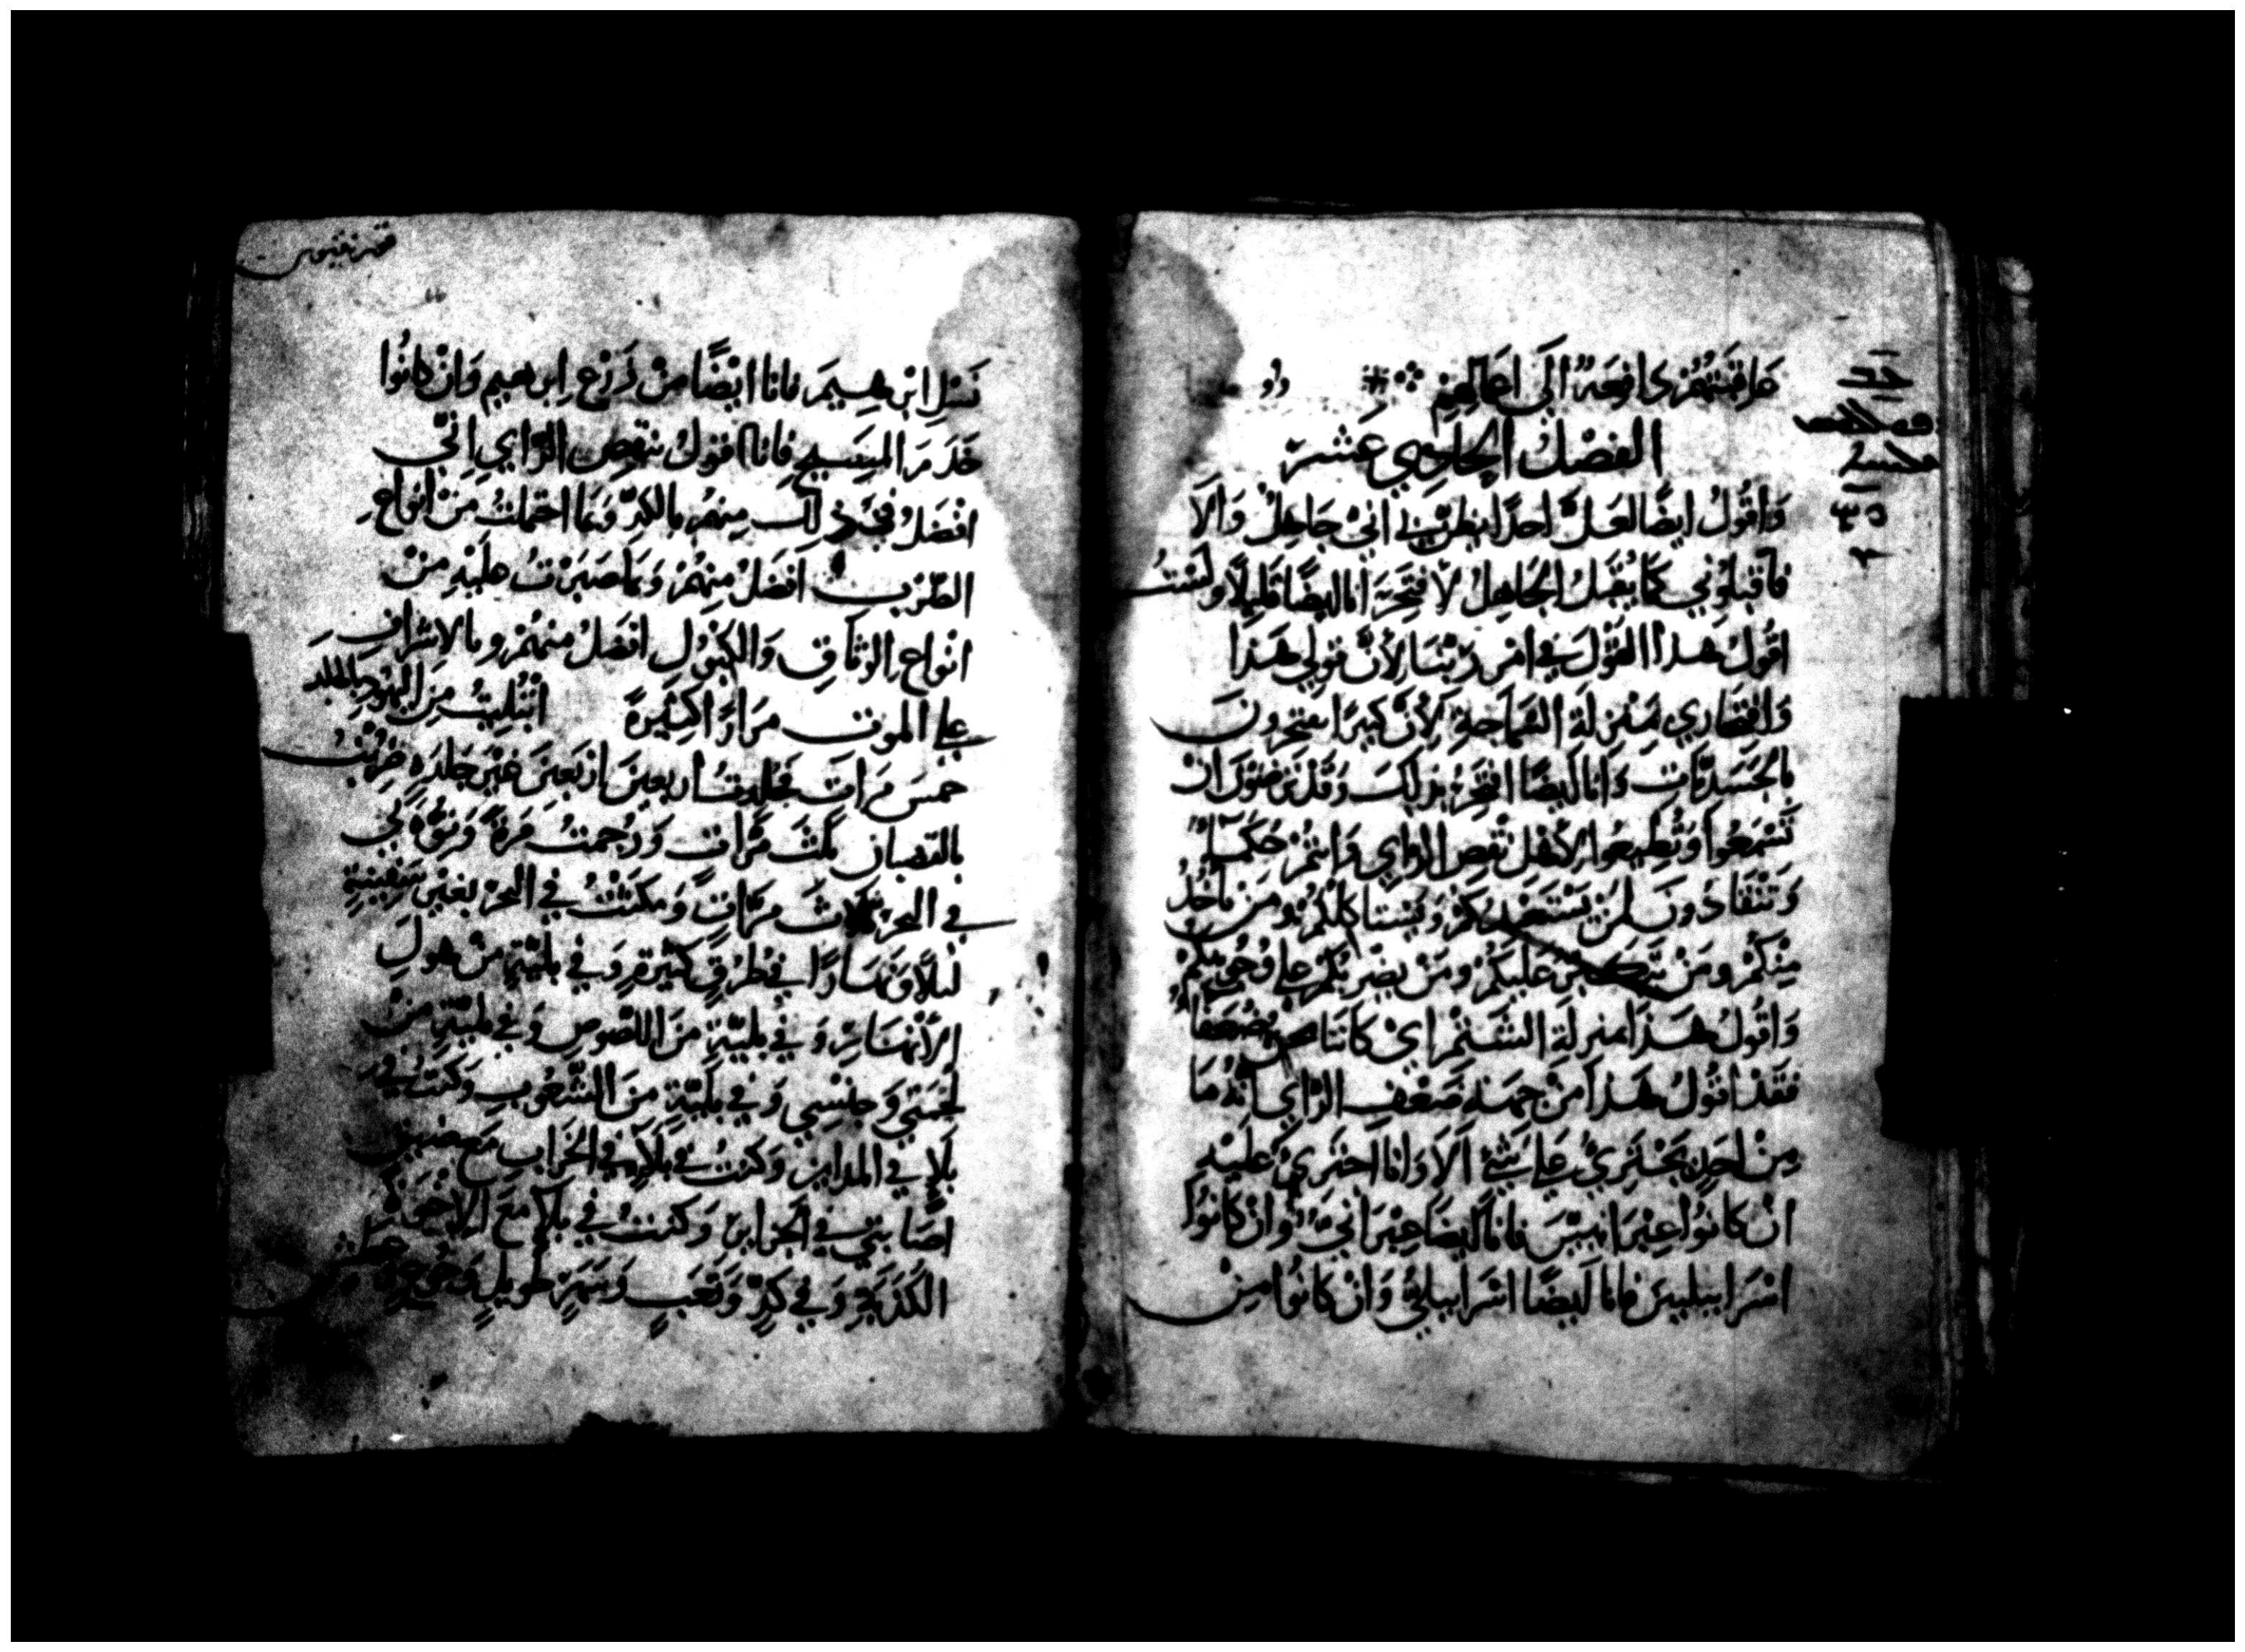 عاقبتهم راجعة الى اعمالهم
الفصل الحادي عشر
وَاقُولُ ايضًا لعَلَّ احدًا يظن بي انيْ جَاهِلْ وَالَا
فاقبلوُني كما يُقبَلُ الجَاهِلُ لافتَخِرَ انا ايضًا قليلًا ولسْتُ
اقُولُ هذا القَوْلَ في امْرِ رَبّنَا لِأنَّ قولي هَذا
وَافتخاري بمَنْزلَة السَمَاجَةِ لِأنَّ كثيرًا يفتخرونَ
بالجَسَدِيَّات وَانا ايضًا افتخِرُ بذلكَ وَقَدْ ترضَوْنَ انْ
تَسْمَعُوا وَتُطِيعُوا لِأهْلِ نقصِ الراي وَانتُمْ حُكَمَاء
وَتنْقَادُونَ لمَنْ يَسْتَعْبدكمْ وَيَستاكلكُمْ ومَن يأخُذُ
مِنْكُمْ ومَنْ يتكبّرُ عَلَيكُمْ ومَنْ يضْرِبُكُمْ على وُجُوهِكُمْ
وَاقُولُ هَذا بمنزلَةِ الشَتمْ ايْ كاننا ضُعَفَا
فقدْ اقُولُ هَذا منْ جهَة ضَعْفِ الرَّاي انهُ مَا
مِنْ احَدٍ يَجْتري على شَيْءٍ اَلا وَانا اجتَري عَليْهِ
انْ كانوُا عِبْرَانييّنَ فانا ايضًا عِبْرَانيٌ وَانْ كانوُا
اسْرَاييليينَ فانا ايضًا اسْرَاييليٌ وَانْ كانُوا مِنْ
قرنتيوس
نَسْلِ ابْرهِيمَ فانا ايْضًا منْ زَرْعِ اِبرهيم وَانْ كانُوا
خدَمَ المسِيحِ فانا اقولُ بنقصِ الرَّايِ انِّي
افْضَلُ في ذلك مِنهُم بالكدِّ وَبما احتملتُ منْ انواعِ
الضَّرْبِ افضَلْ مِنهُمْ وَبما صَبَرْتُ عليْهِ مِنْ
انْواعِ الوَثاقِ وَالكبُولِ افضَلُ منهُمْ وبالاشرافِ
على الموت مرَارًا كثيرةً ابْتُليتُ مِنَ اليهُودِ بالجلد
خمسَ مرَاتٍ فجُلدتُ اربعينَ ارْبَعينَ غيْرَ جَلدَةٍ ضُربْتُ
بالقضبان ثلَثَ مَرَّاتٍ وَرُجمتُ مَرةً وَغرقَ بي
في البحر ثلاثَ مرَّاتٍ وَمكثتُ في البحر بغيْرِ سَفينةٍ
ليلًا وَنهَارًا في طرُقٍ كثيرةٍ وَفي بليَّةٍ منْ هولِ
الأنْهَارِ وَ في بليّةٍ منَ اللصُوصِ وَفي بليّةٍ منْ
لحمَتي وَجنْسِي وَفي بلَيّةٍ منَ الشُّعُوبِ وَكنتُ في
بلَاءٍ في المداين وَكنتُ في بلَاءٍ في الخرَاب مَعَ ضيقٍ
اصَابَني في الجزايرِ وَكنتُ في بلَاءٍ معَ الاخوة
الكَذَبةِ وَ في كدٍّ وَتعَبٍ وَسَهرٍ طويلٍ وَجُوعٍ وَعطشٍ